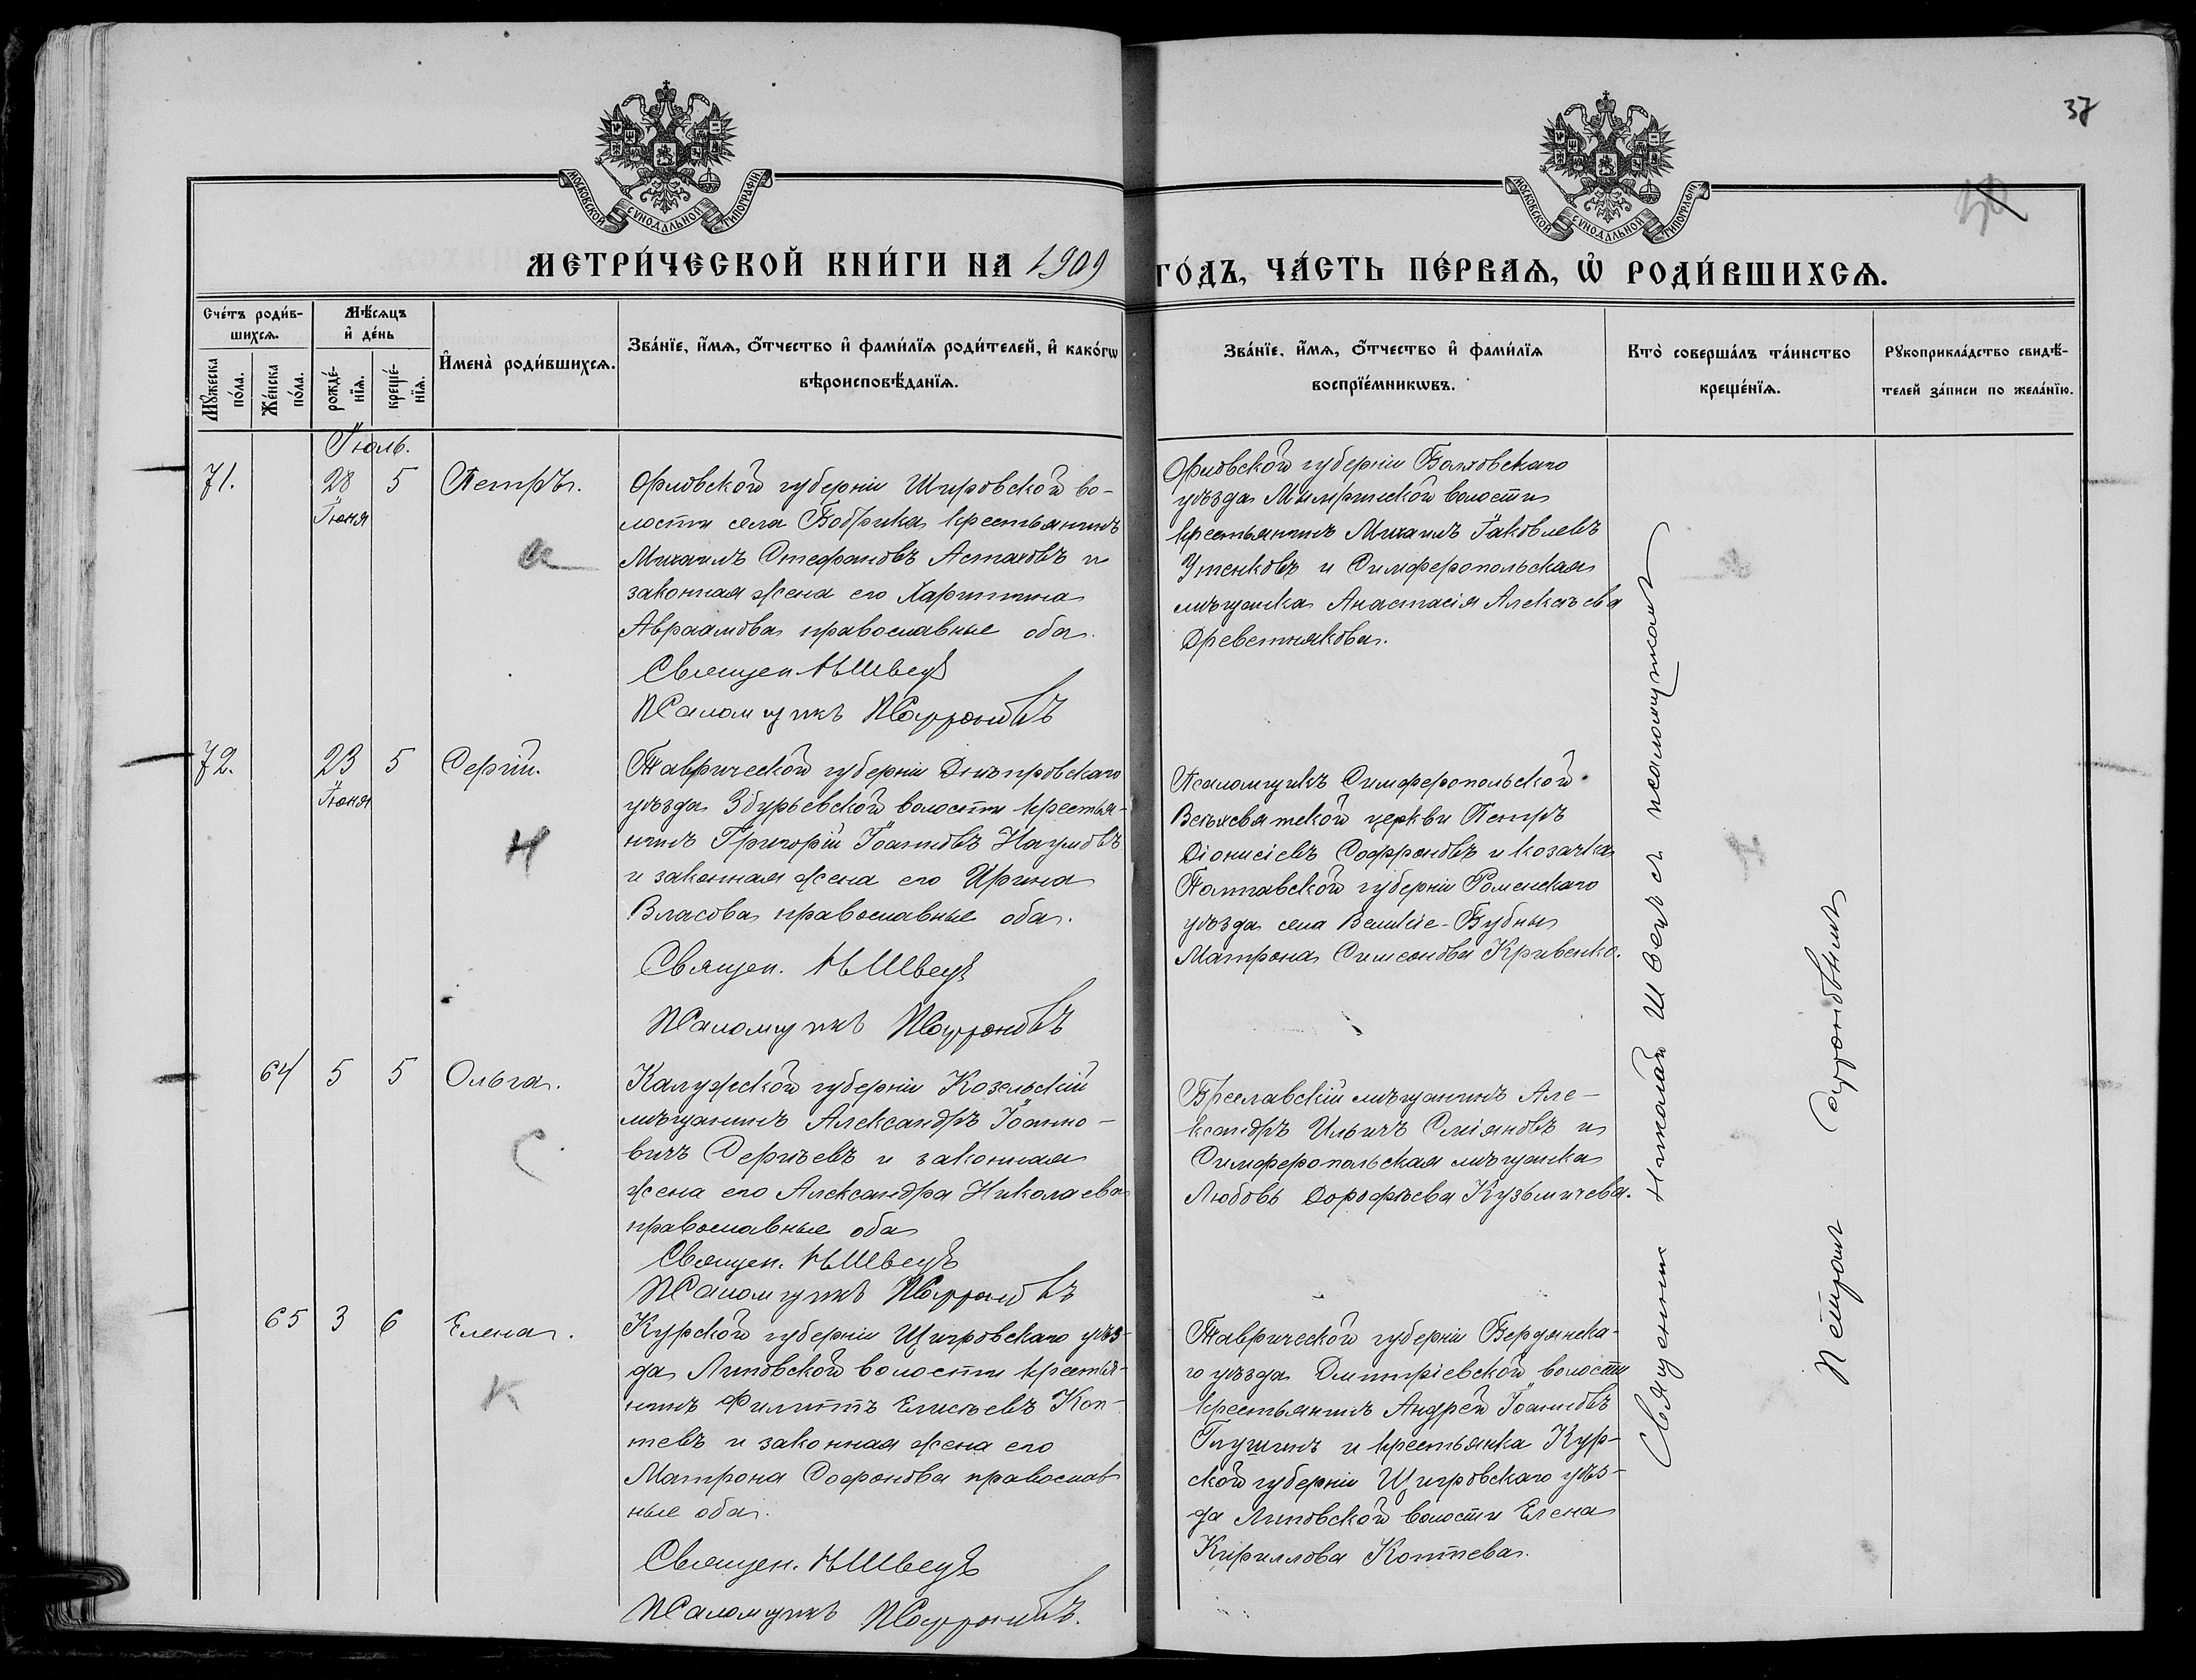 37
МОСКОВСКОЙ СѴНОДАЛЬНОЙ ТИПОГРАФІИ
МОСКОВСКОЙ СѴНОДАЛЬНОЙ ТИПОГРАФІИ
МЕТРИ́ЧЕСКОЙ КНИ́ГИ НА 1909 ГО́ДЪ, ЧА́СТЬ ПЕ́РВАѦ, Ѡ҆ РОДИ́ВШИХСѦ.
Сче́тъ роди́в-
шихсѧ.
Мꙋ́жеска по́ла.
Же́нска по́ла.
Мѣ́сѧцъ
и҆ де́нь
рожде́-
нїѧ.
креще́-
нїѧ.
И҆мена̀ роди́вшихсѧ.
Зва́нїе, и҆́мѧ, ѻ҆́тчество и҆ фами́лїѧ роди́телей, и҆ како́гѡ
вѣроисповѣ́данїѧ.
Зва́нїе, и҆́мѧ, ѻ҆́тчество и҆ фами́лїѧ
воспрїе́мникѡвъ.
Кто̀ соверша́лъ та́инство
креще́нїѧ.
Рꙋкоприкла́дство свидѣ́-
телей за́писи по жела́нїю.
Іюль.
71.
28
Іюня
5
Петръ.
Орловской губерніи Щигровской во-
лости села Бобрика крестьянинъ
Михаилъ Стефановъ Астаховъ и
законная жена его Харитина
Авраамова православные оба.
Священ. Н Швецъ
Псаломщикъ П Софроновъ
Орловской губерніи Болховскаго
уѣзда волости
крестьянинъ Михаилъ Іаковлевъ
Утенковъ и Симферопольская
мѣщанка Анастасія Алексѣева
Древетнякова.
72.
23
Іюня
5
Сергій.
Н
Таврической губерніи Днѣпровскаго
уѣзда Збурьевской волости крестья-
нинъ Григорій Іоанновъ Наумовъ
и законная жена его Ирина
Власова православные оба.
Священ. Н Швецъ
Псаломщикъ П Софроновъ
Псаломщикъ Симферопольской
Всѣхсвятской церкви Петръ
Діонисіевъ Софроновъ и козачка
Полтавской губерніи Роменскаго
уѣзда села Великіе-Бубны
Матрона Симеонова Кривенко.
64
5
5
Ольга.
С
Калужской губерніи Козельскій
мѣщанинъ Александръ Іоанно-
вичъ Сергѣевъ и законная
жена его Александра Николаева
православные оба
Священ. Н Швецъ
Псаломщикъ П Софроновъ
Бреславскій мѣщанинъ Але-
ксандръ Ильичъ Сміяновъ и
Симферопольская мѣщанка
Любовь Дорофѣева Кузьмичева.
65
3
6
Елена.
К
Курской губерніи Щигровскаго уѣз-
да Липовской волости крестья-
нинъ Филиппъ Елисѣевъ Коп-
тевъ и законная жена его
Матрона Софонова православ
ные оба.
Священ. Н Швецъ
Псаломщикъ П Софроновъ.
Таврической губерніи Бердянска-
го уѣзда Димитріевской волости
крестьянинъ Андрей Іоанновъ
Глушинъ и крестьянка Кур-
ской губерніи Щигровскаго уѣз-
да Липовской волости Елена
Кириллова Коптева.
Священникъ Николай Швецъ съ псаломщикомъ
Петромъ Софроновымъ